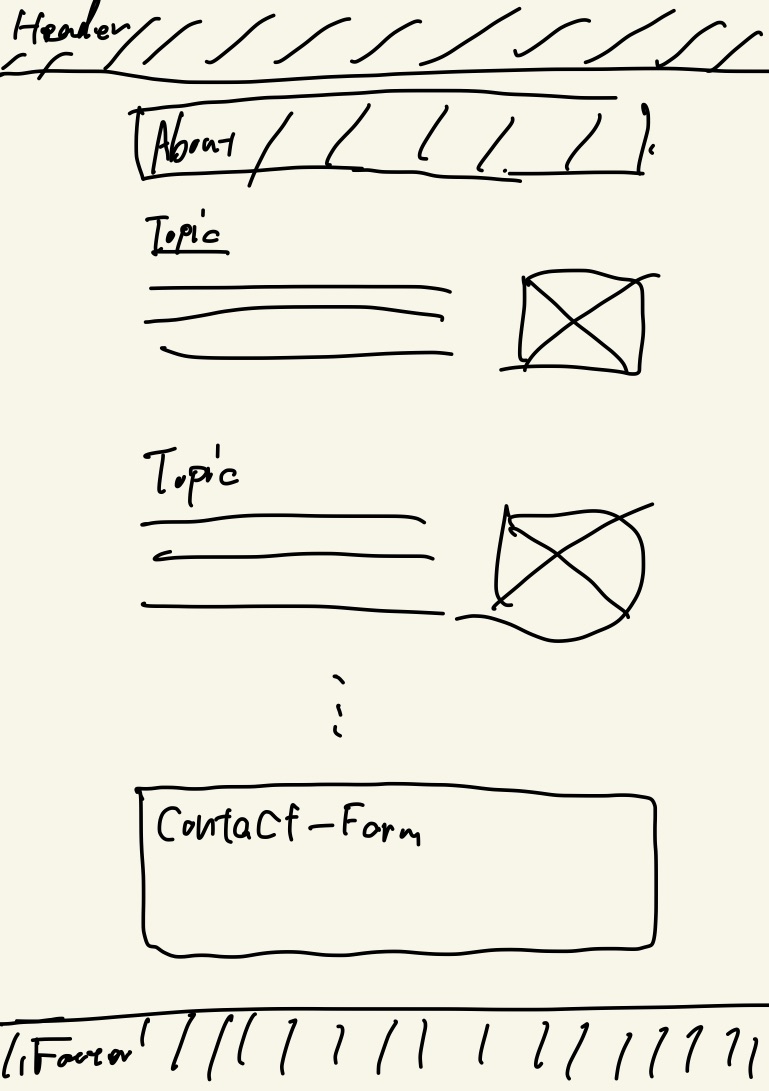 Header
About
Topic
Topic
Contact-Form
Footer